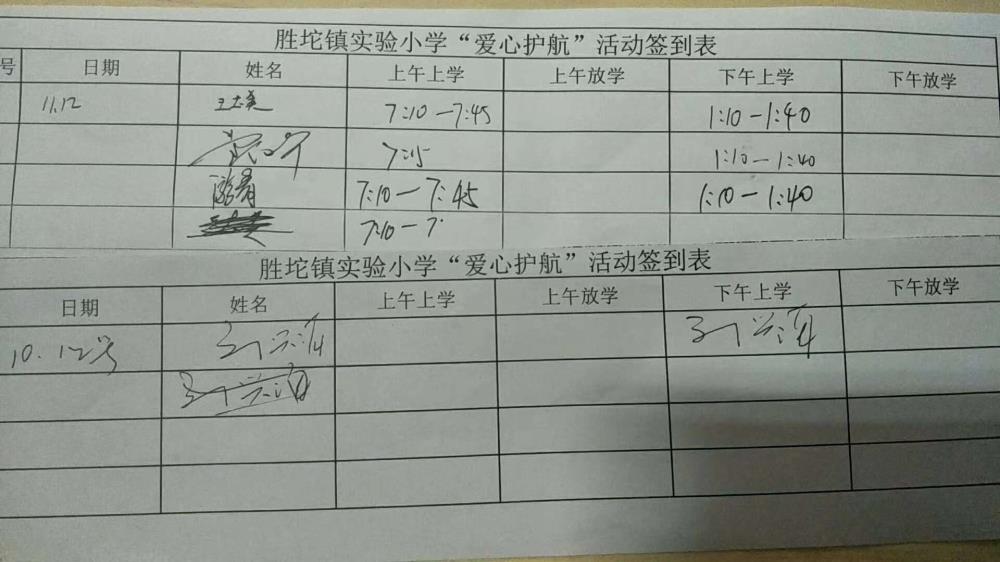 胜坨镇实验小学“爱心护航”活动签到表
号 日期 姓名 上午上学 上午放学 下午上学 下午放学
11.12 7:10—7:45 1:10—1:40
7:15 1:10—1:40
7:10—7:45 1:10—1:40
7:10—7:
胜坨镇实验小学“爱心护航”活动签到表
日期 姓名 上午上学 上午放学 下午上学 下午放学
10.12号